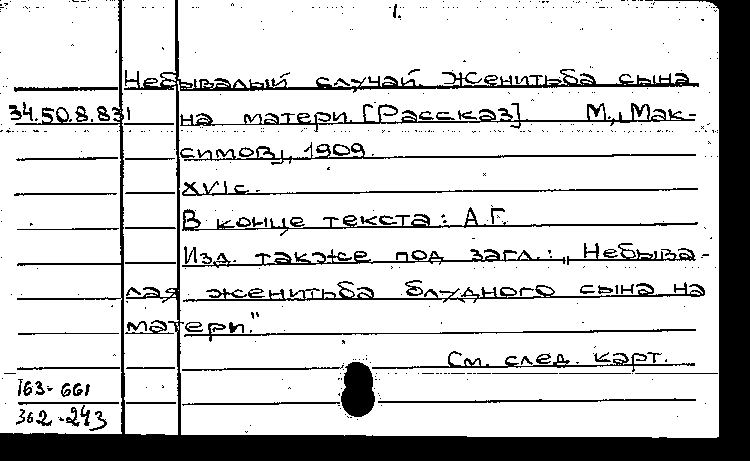 1.
Небывалый случай. Женитьба сына
34.50.8.831 на матери. [Рассказ]. М., „Мак-
симов", 1909.
XVI с.
В конце текста: А.Г.
Изд. также под загл.: „Небыва-
лая женитьба блудного сына на
матери."
См. след. карт.
163-661
362-243